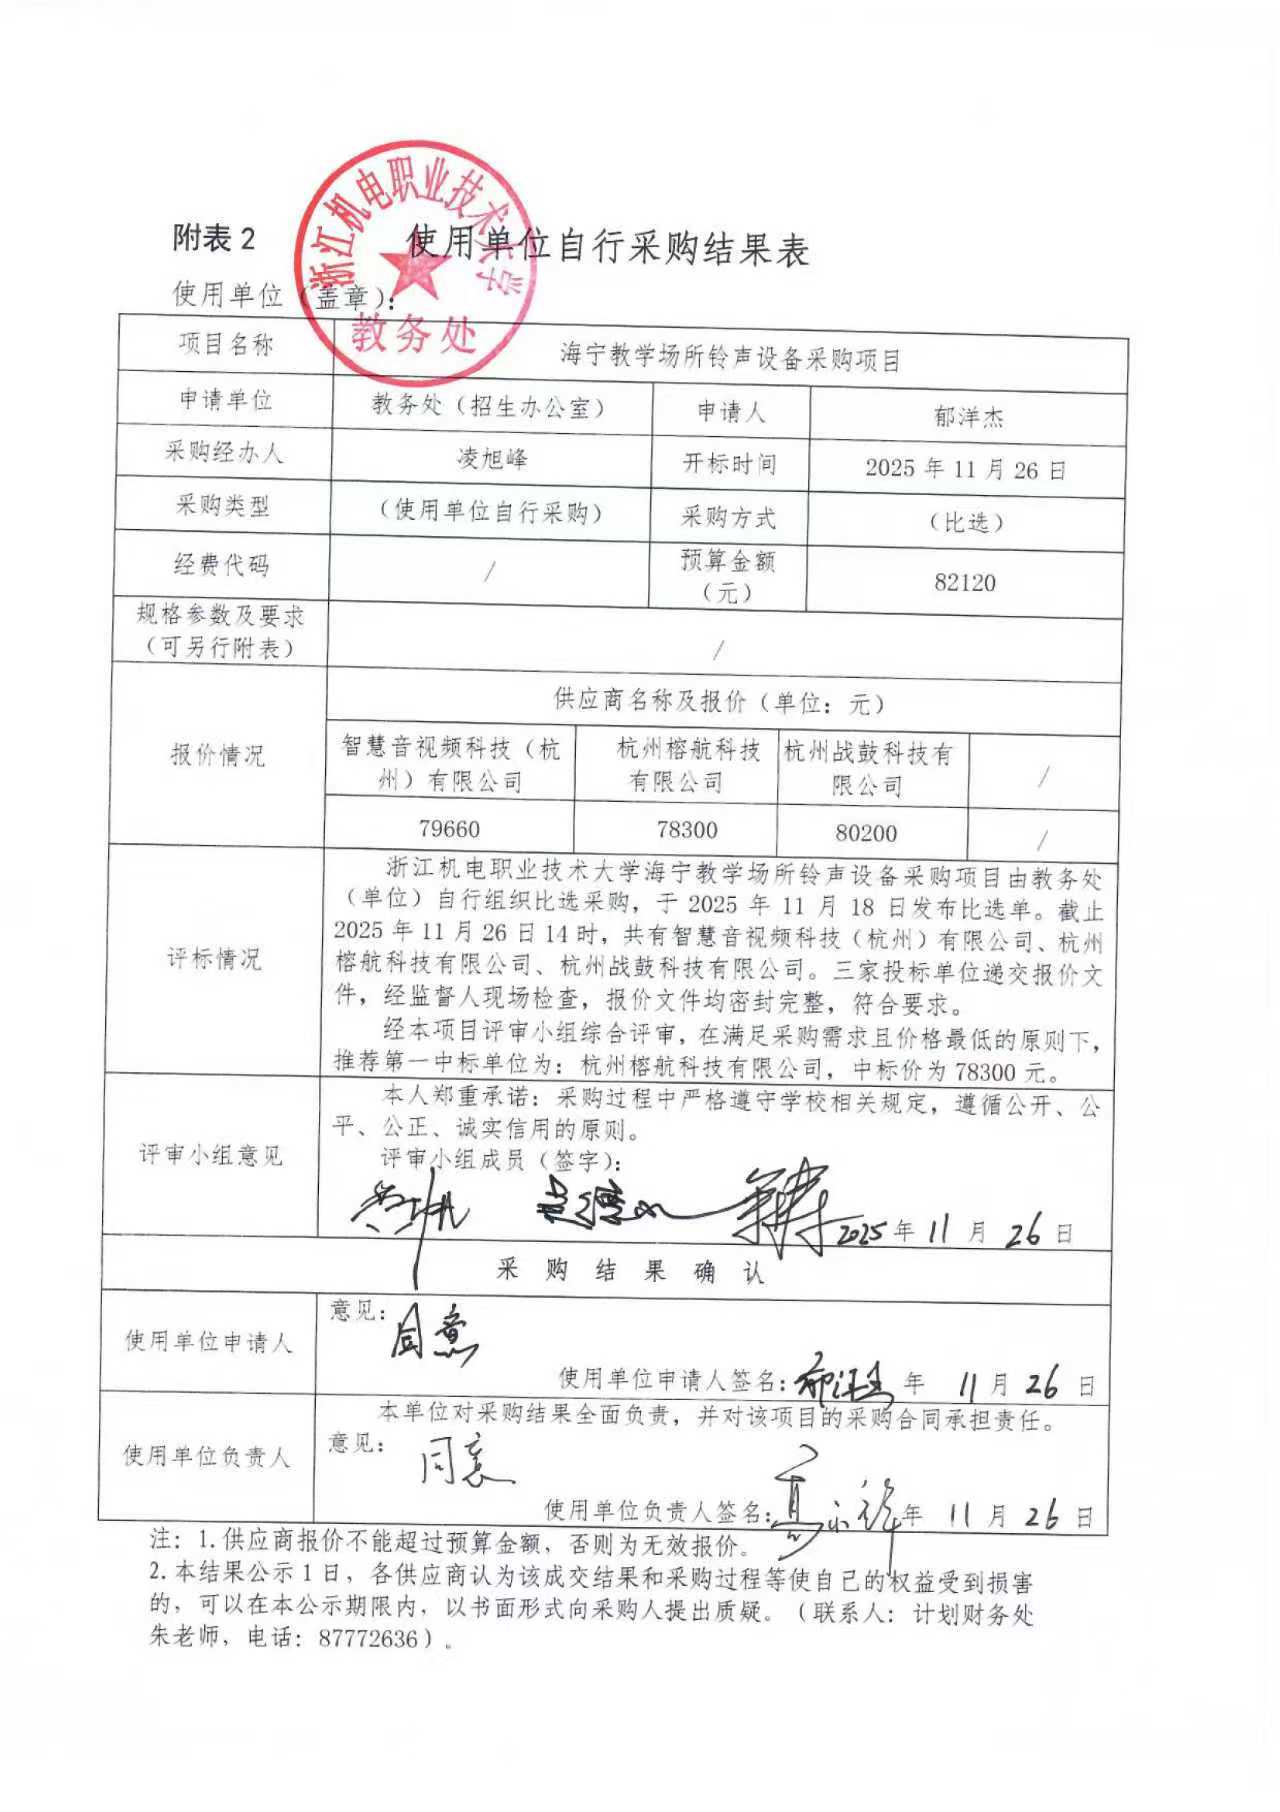 浙江机电职业技术大学
教务处
附表 2
使用单位自行采购结果表
使用单位（盖章）：
项目名称
海宁教学场所铃声设备采购项目
申请单位
教务处（招生办公室）
申请人
郁洋杰
采购经办人
凌旭峰
开标时间
2025 年 11 月 26 日
采购类型
（使用单位自行采购）
采购方式
（比选）
经费代码
/
预算金额
（元）
82120
规格参数及要求
（可另行附表）
/
报价情况
供应商名称及报价（单位：元）
智慧音视频科技（杭
州）有限公司
杭州榕航科技
有限公司
杭州战鼓科技有
限公司
/
79660
78300
80200
/
评标情况
浙江机电职业技术大学海宁教学场所铃声设备采购项目由教务处
（单位）自行组织比选采购，于 2025 年 11 月 18 日发布比选单。截止
2025 年 11 月 26 日 14 时，共有智慧音视频科技（杭州）有限公司、杭州
榕航科技有限公司、杭州战鼓科技有限公司。三家投标单位递交报价文
件，经监督人现场检查，报价文件均密封完整，符合要求。
经本项目评审小组综合评审，在满足采购需求且价格最低的原则下，
推荐第一中标单位为：杭州榕航科技有限公司，中标价为 78300 元。
评审小组意见
本人郑重承诺：采购过程中严格遵守学校相关规定，遵循公开、公
平、公正、诚实信用的原则。
评审小组成员（签字）：
2025 年 11 月 26 日
采 购 结 果 确 认
使用单位申请人
意见：
同意
使用单位申请人签名：郁洋杰 年 11 月 26 日
使用单位负责人
本单位对采购结果全面负责，并对该项目的采购合同承担责任。
意见：
同意
使用单位负责人签名： 年 11 月 26 日
注：1.供应商报价不能超过预算金额，否则为无效报价。
2.本结果公示 1 日，各供应商认为该成交结果和采购过程等使自己的权益受到损害
的，可以在本公示期限内，以书面形式向采购人提出质疑。（联系人：计划财务处
朱老师，电话：87772636）。